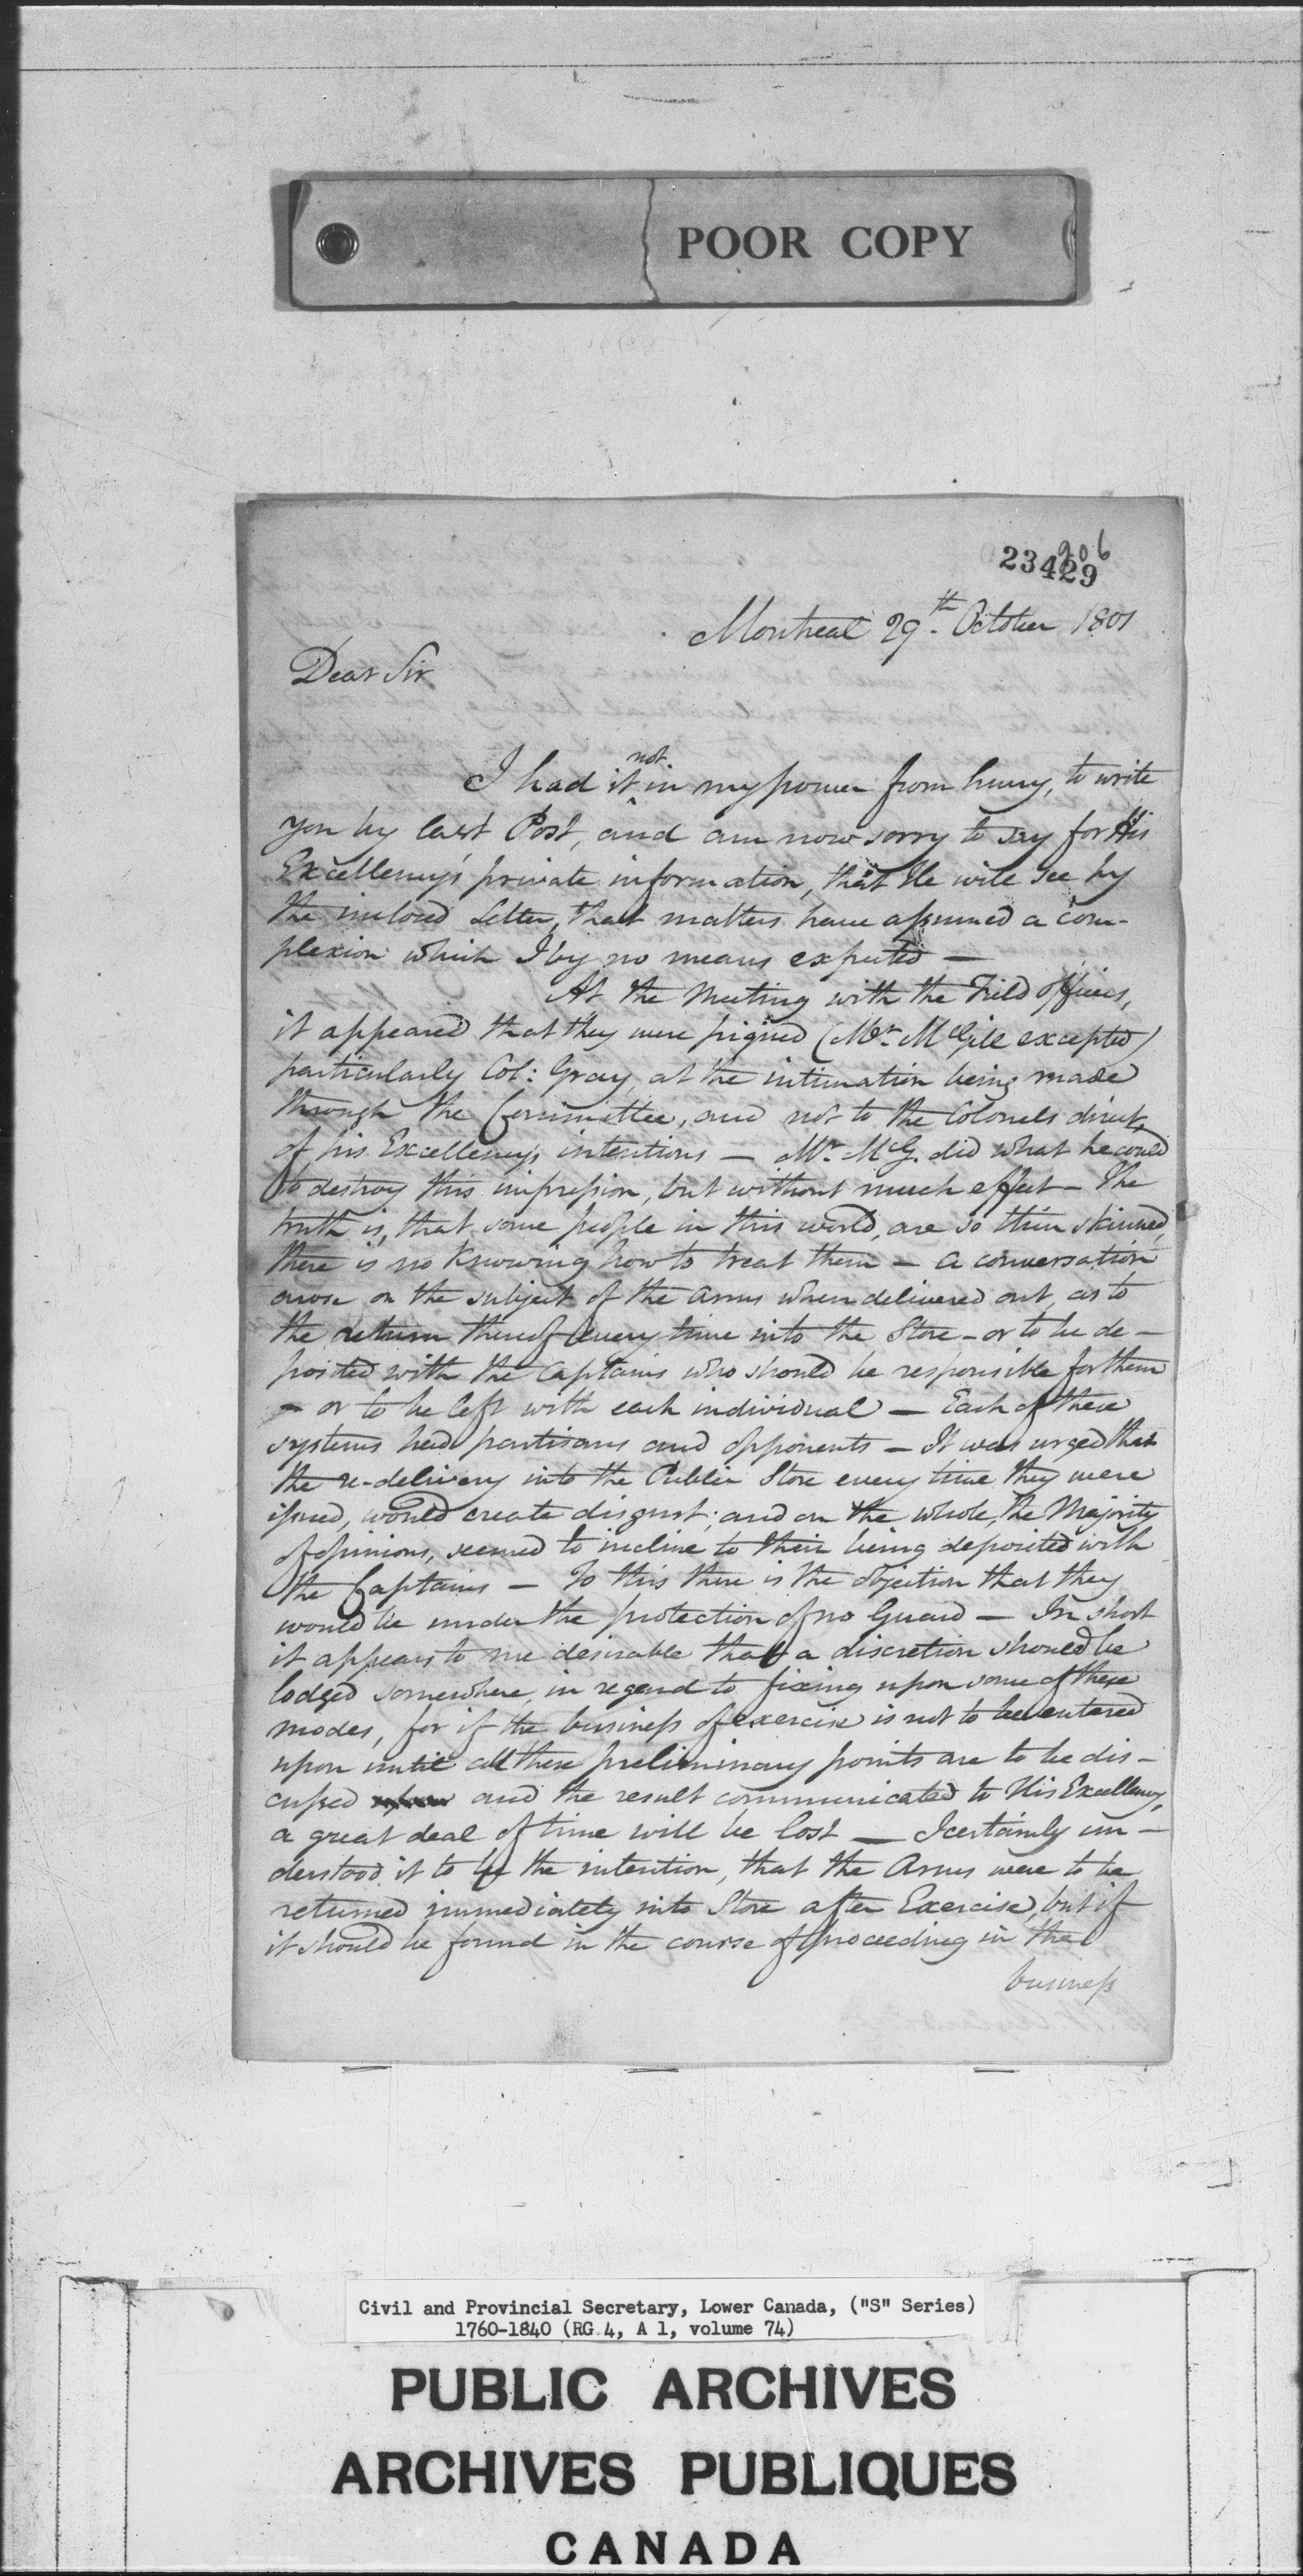 POOR COPY
206
23429
Montreal 29th October 1801
Dear Sir
not
I had it ^ in my power from hurry, to write
you by last Post, and am now sorry to say for His
Excellency's private information, that He will see by
the inclosed Letter, that matters have assumed a com-
plexion which I by no means expected —
At the Meeting with the Field officers,
it appeared that they were piqued (Mr. McGill excepted)
particularly Col: Gray, at the intimation being made
through the Committee, and not to the Colonels direct,
of his Excellency's intentions — Mr. McG. did what he could
to destroy this impression, but without much effect — The
truth is, that some people in this world, are so thin skinned,
there is no knowing how to treat them — A conversation
arose on the subject of the Arms when delivered out, as to
the return thereof every time into the Store — or to be de-
posited with the Captains who should be responsible for them
— or to be left with each individual — Each of these
systems had partisans and opponents — It was urged that
the re-delivery into the Public Store every time they were
issued, would create disgust; and on the whole, the Majority
of opinions, seemed to incline to their being deposited with
the Captains — To this there is the objection that they
would be under the protection of no Guard — In short
it appears to me desirable that a discretion should be
lodged somewhere, in regard to fixing upon some of these
modes, for if the business of exercise is not to be entered
upon until all these preliminary points are to be dis-
cussed and the result communicated to His Excellency,
a great deal of time will be lost — I certainly un-
derstood it to be the intention, that the Arms were to be
returned immediately into Store after Exercise, but if
it should be found in the course of proceeding in the
business
Civil and Provincial Secretary, Lower Canada, ("S" Series)
1760-1840 (RG 4, A 1, volume 74)
PUBLIC ARCHIVES
ARCHIVES PUBLIQUES
CANADA